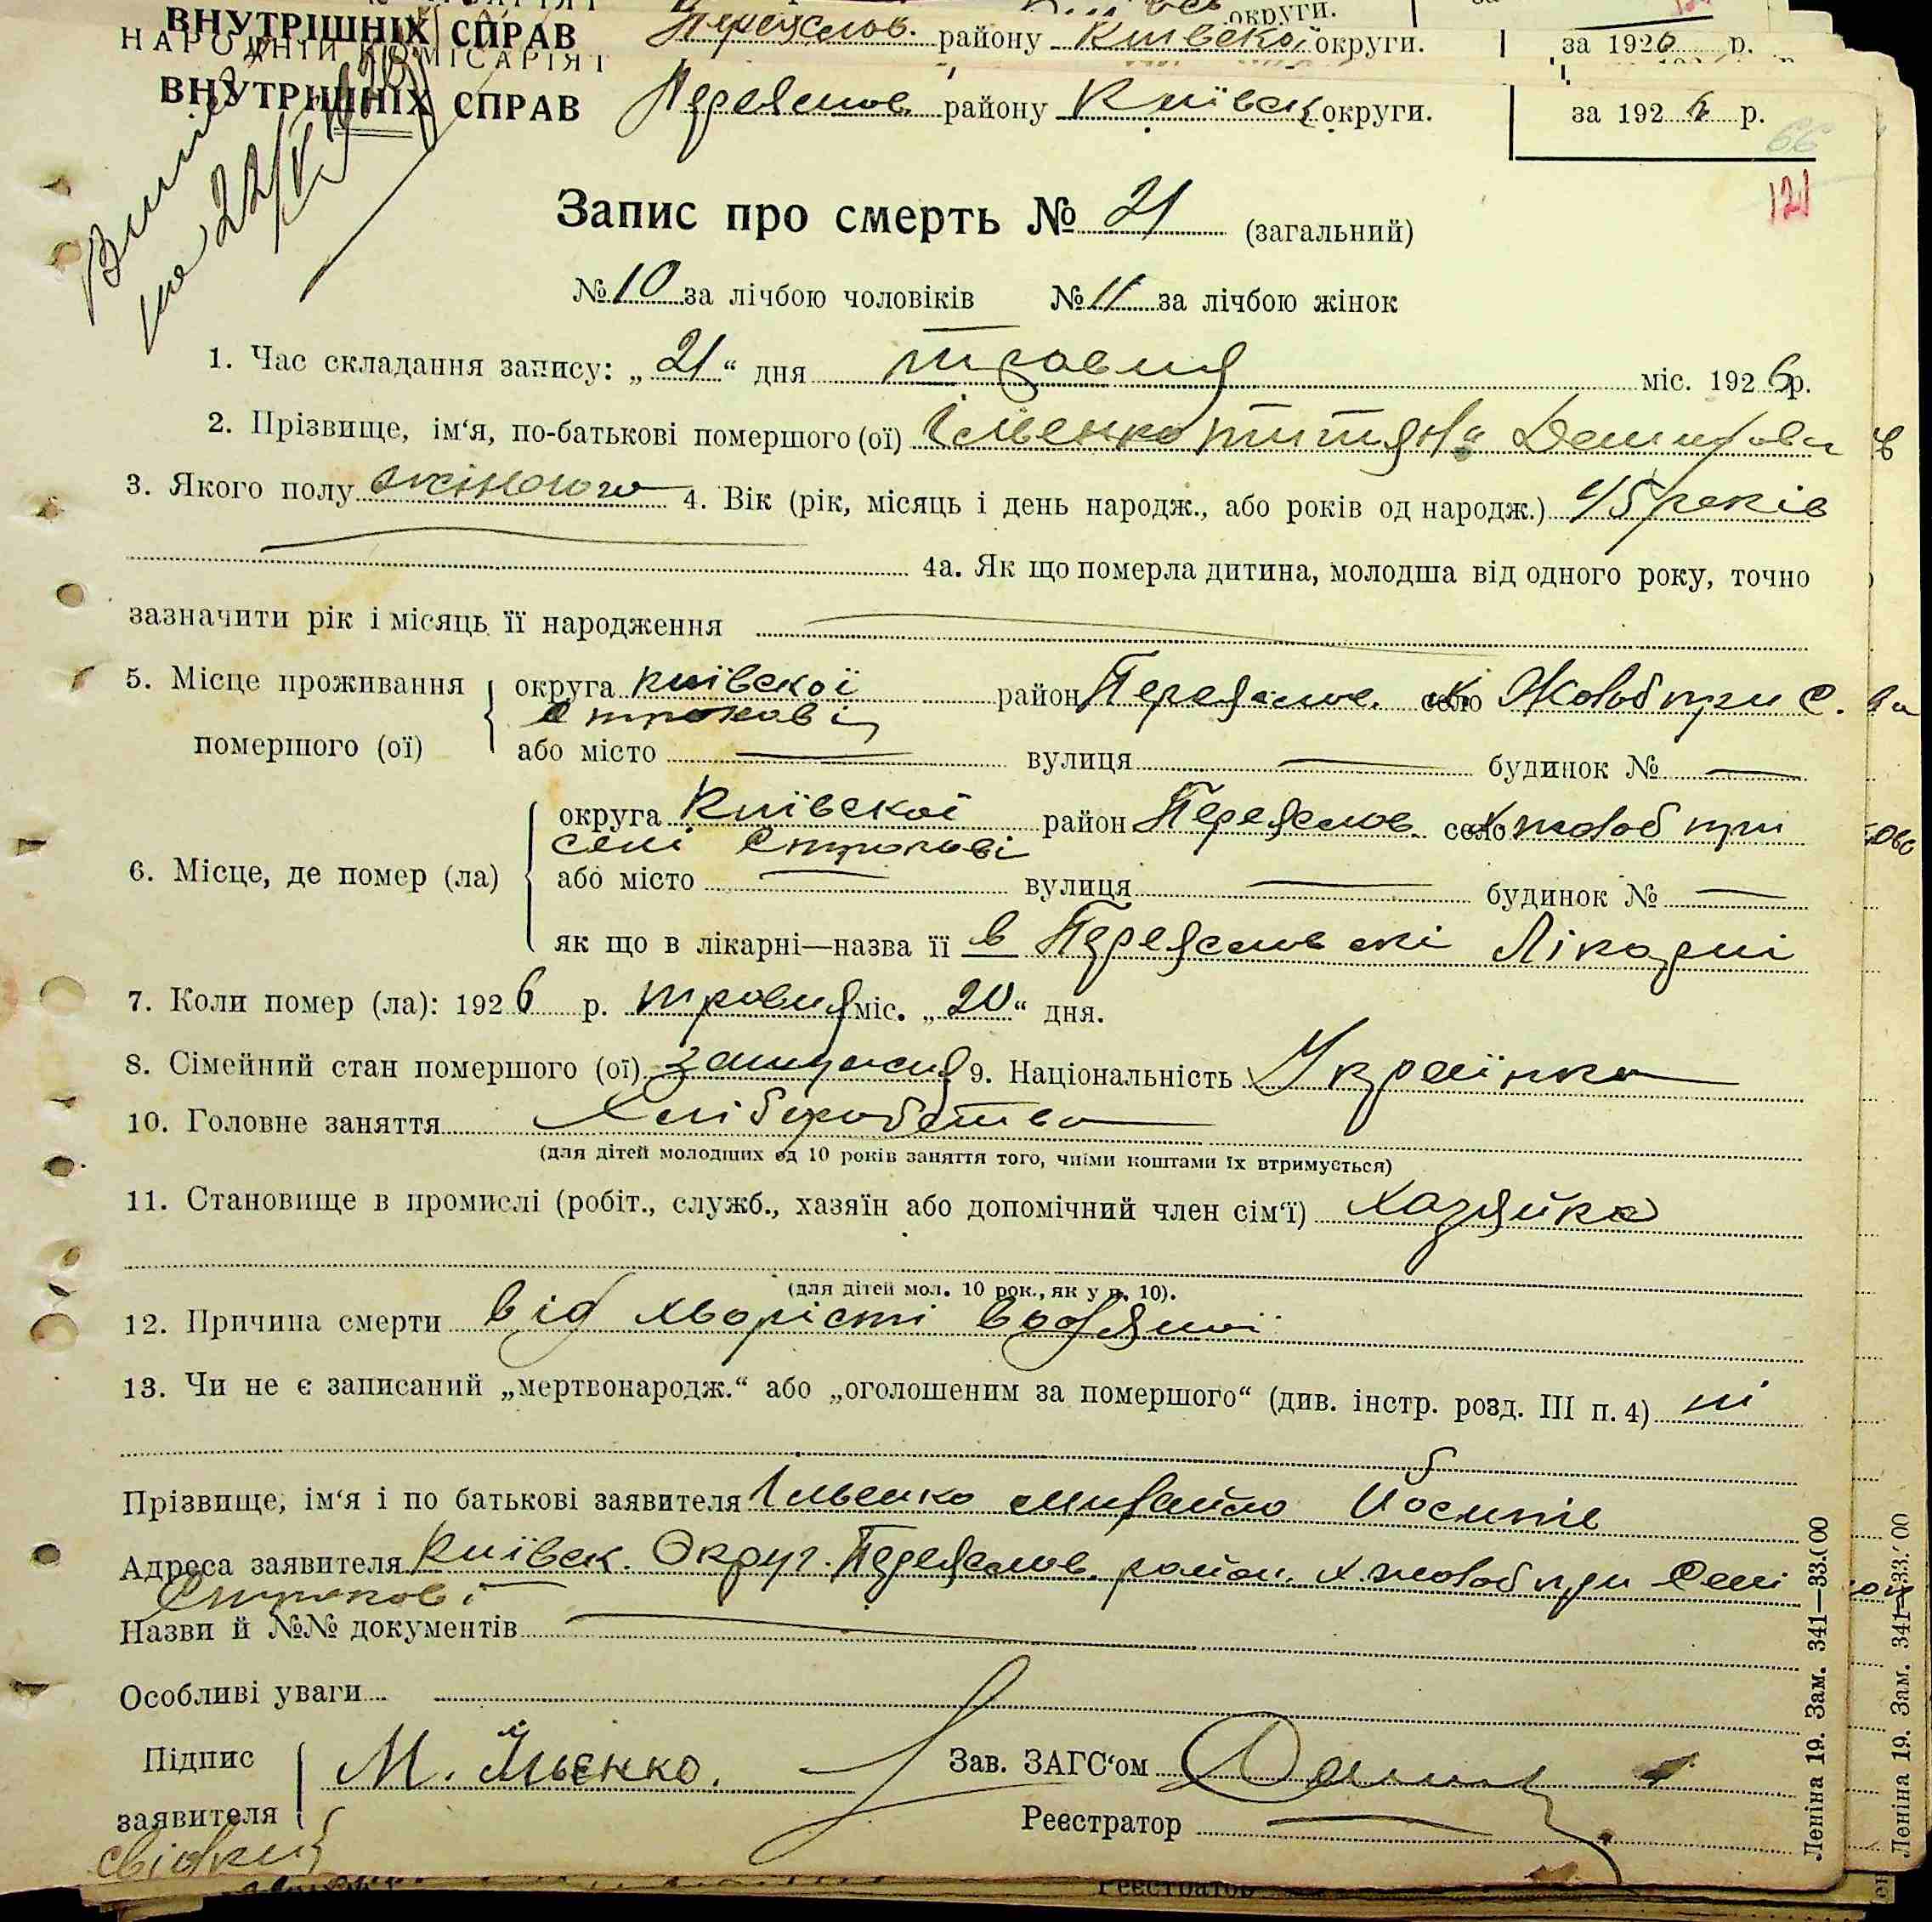 ВНУТРІШНІХ СПРАВ Переяслов. району Київської округи. за 1926 р.
НАРОДНІЙ КОМІСАРІЯТ
ВНУТРІШНІХ СПРАВ Переяслов. району Київськ округи. за 1926 р.
66
121
на 22/V
Запис про смерть № 21 (загальний)
№ 10 за лічбою чоловіків № 11 за лічбою жінок
1. Час складання запису: „21“ дня травня міс. 1926 р.
2. Прізвище, ім‘я, по-батькові помершого (ої) Ільенко Титяна Демидова
3. Якого полу жіночого 4. Вік (рік, місяць і день народж., або років од народж.) 45 років
4а. Як що померла дитина, молодша від одного року, точно
зазначити рік і місяць її народження
5. Місце проживання округа київскої район Переяслов. село Х. Жолоб при С.
Строкові
помершого (ої) або місто — вулиця — будинок № —
округа Київскої район Переяслов. село х жолоб при
селі Строкові
6. Місце, де помер (ла) або місто — вулиця — будинок № —
як що в лікарні—назва її в Переясловскі Лікарні
7. Коли помер (ла): 1926 р. травня міс. „20“ дня.
8. Сімейний стан помершого (ої) замужня 9. Національність Українка
10. Головне заняття Хліборобство
(для дітей молодших од 10 років заняття того, чиїми коштами їх втримується)
11. Становище в промислі (робіт., служб., хазяїн або допомічний член сім‘ї) хазяйка
(для дітей мол. 10 рок., як у п. 10).
12. Причина смерти від хворісті водяної
13. Чи не є записаний „мертвонародж.“ або „оголошеним за помершого“ (див. інстр. розд. III п. 4) ні
Прізвище, ім‘я і по батькові заявителя Ільенко Михайло Йосипів
Адреса заявителя Київск. Округ. Переяслов. район. х. жолоб при Селі
Строкові
Назви й №№ документів
Особливі уваги
Підпис заявителя М. Ільєнко. Зав. ЗАГС‘ом
Реєстратор —
свідки
Леніна 19. Зам. 341—33.000
Леніна 19. Зам. 341—33.000
Реєстратор